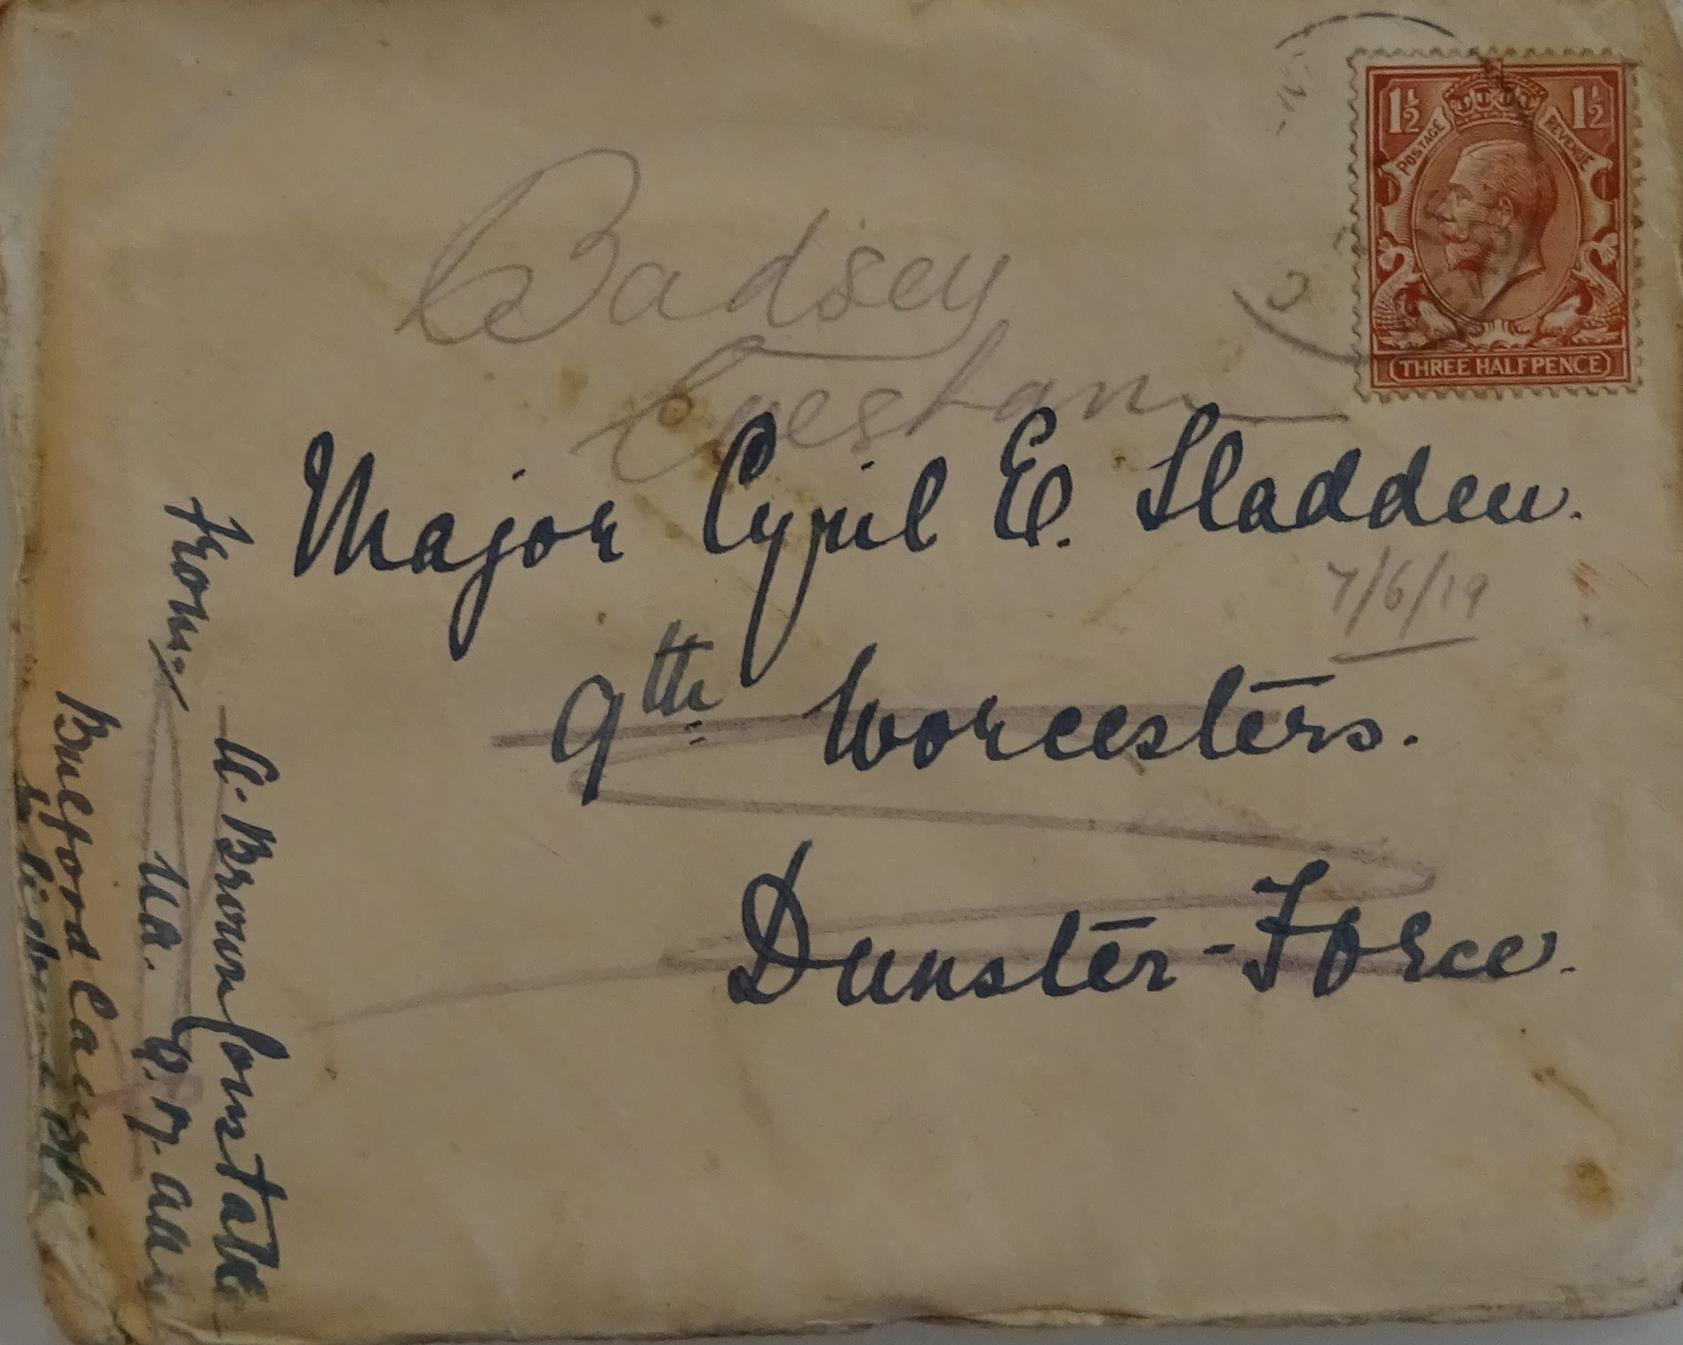 1½ 1½
POSTAGE REVENUE
THREE HALFPENCE
Badsey
Evesham
Major Cyril E. Sladden.
7/6/19
9th Worcesters.
Dunster-Force.
From:
A. Brown Constable
Bulford Camp.